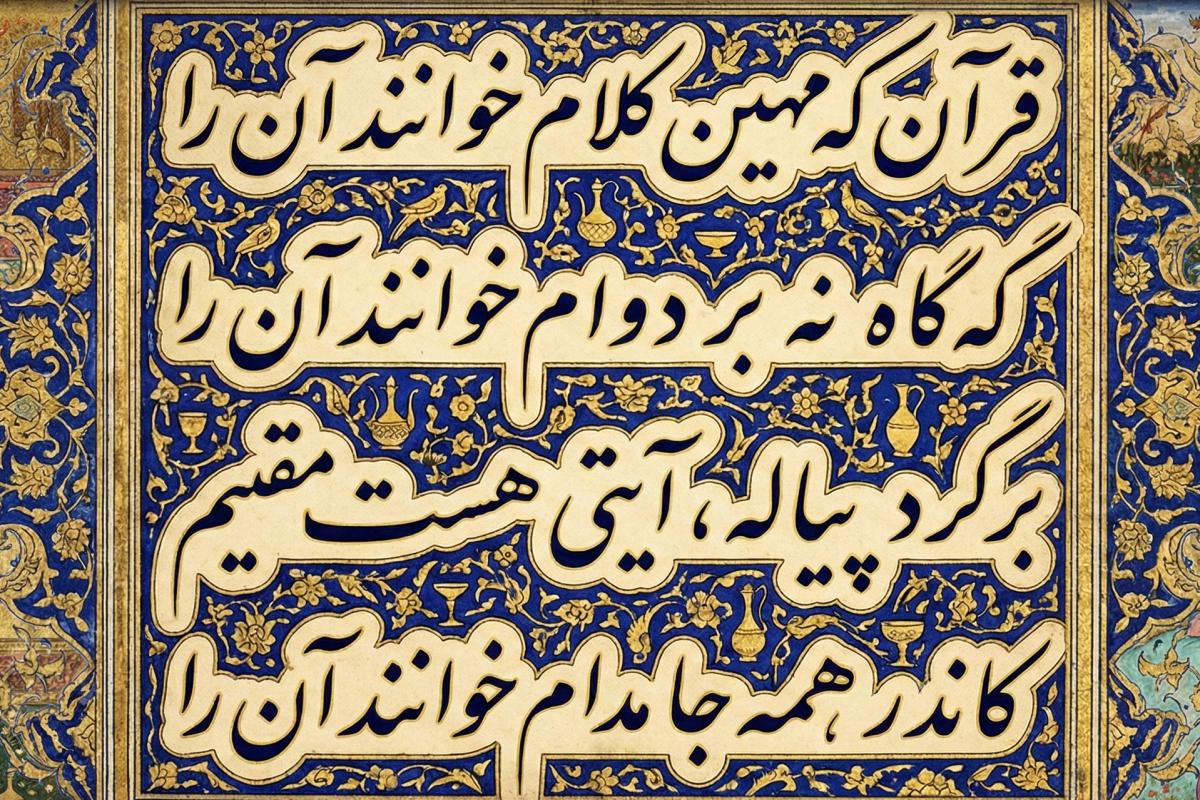 قرآن که مهین کلام خوانند آن را
گه گاه نه بر دوام خوانند آن را
برگرد پیاله، آیتی هست مقیم
کاندر همه جا مدام خوانند آن را